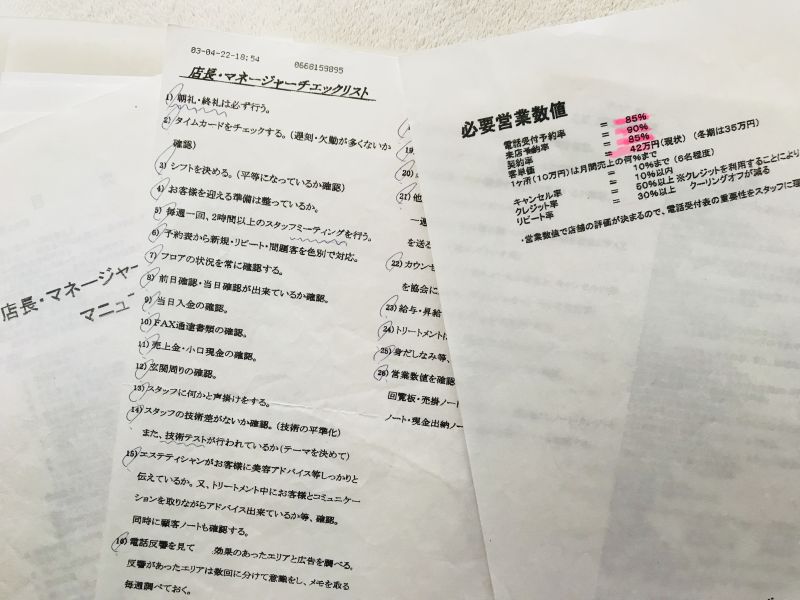 店長・マネージャー
マニュ
03-04-22-18;54 0668159895
店長・マネージャーチェックリスト
1) 朝礼・終礼は必ず行う。
2) タイムカードをチェックする。(遅刻・欠勤が多くないか
確認)
3) シフトを決める。(平等になっているか確認)
4) お客様を迎える準備は整っているか。
5) 毎週一回、2時間以上のスタッフミーティングを行う。
6) 予約表から新規・リピート・問題客を色別で対応。
7) フロアの状況を常に確認する。
8) 前日確認・当日確認が出来ているか確認。
9) 当日入金の確認。
10) FAX通達書類の確認。
11) 売上金・小口現金の確認。
12) 玄関周りの確認。
13) スタッフに何かと声掛けをする。
14) スタッフの技術差がないか確認。(技術の平準化)
また、技術テストが行われているか(テーマを決めて)
15) エステティシャンがお客様に美容アドバイス等しっかりと
伝えているか。又、トリートメント中にお客様とコミュニケー
ションを取りながらアドバイス出来ているか等、確認。
同時に顧客ノートも確認する。
16) 電話反響を見て 効果のあったエリアと広告を調べる。
反響があったエリアは数回に分けて意識をし、メモを取る
毎週調べておく。
19)
20)
21) 他
一週
を送る
22) カウンセ
を協会に
23) 給与・昇給
24) トリートメント
25) 身だしなみ等、
26) 営業数値を確認
回覧板・売掛ノート
ノート・現金出納ノー
必要営業数値
電話受付予約率 = 85%
来店予約率 = 90%
契約率 = 85%
客単価 = 42万円(現状) (冬期は35万円)
1ヶ所(10万円)は月間売上の何%まで = 10%まで(6名程度)
キャンセル率 = 10%以内
クレジット率 = 50%以上 ※クレジットを利用することにより
リピート率 = 30%以上 クーリングオフが減る
・営業数値で店舗の評価が決まるので、電話受付表の重要性をスタッフに理